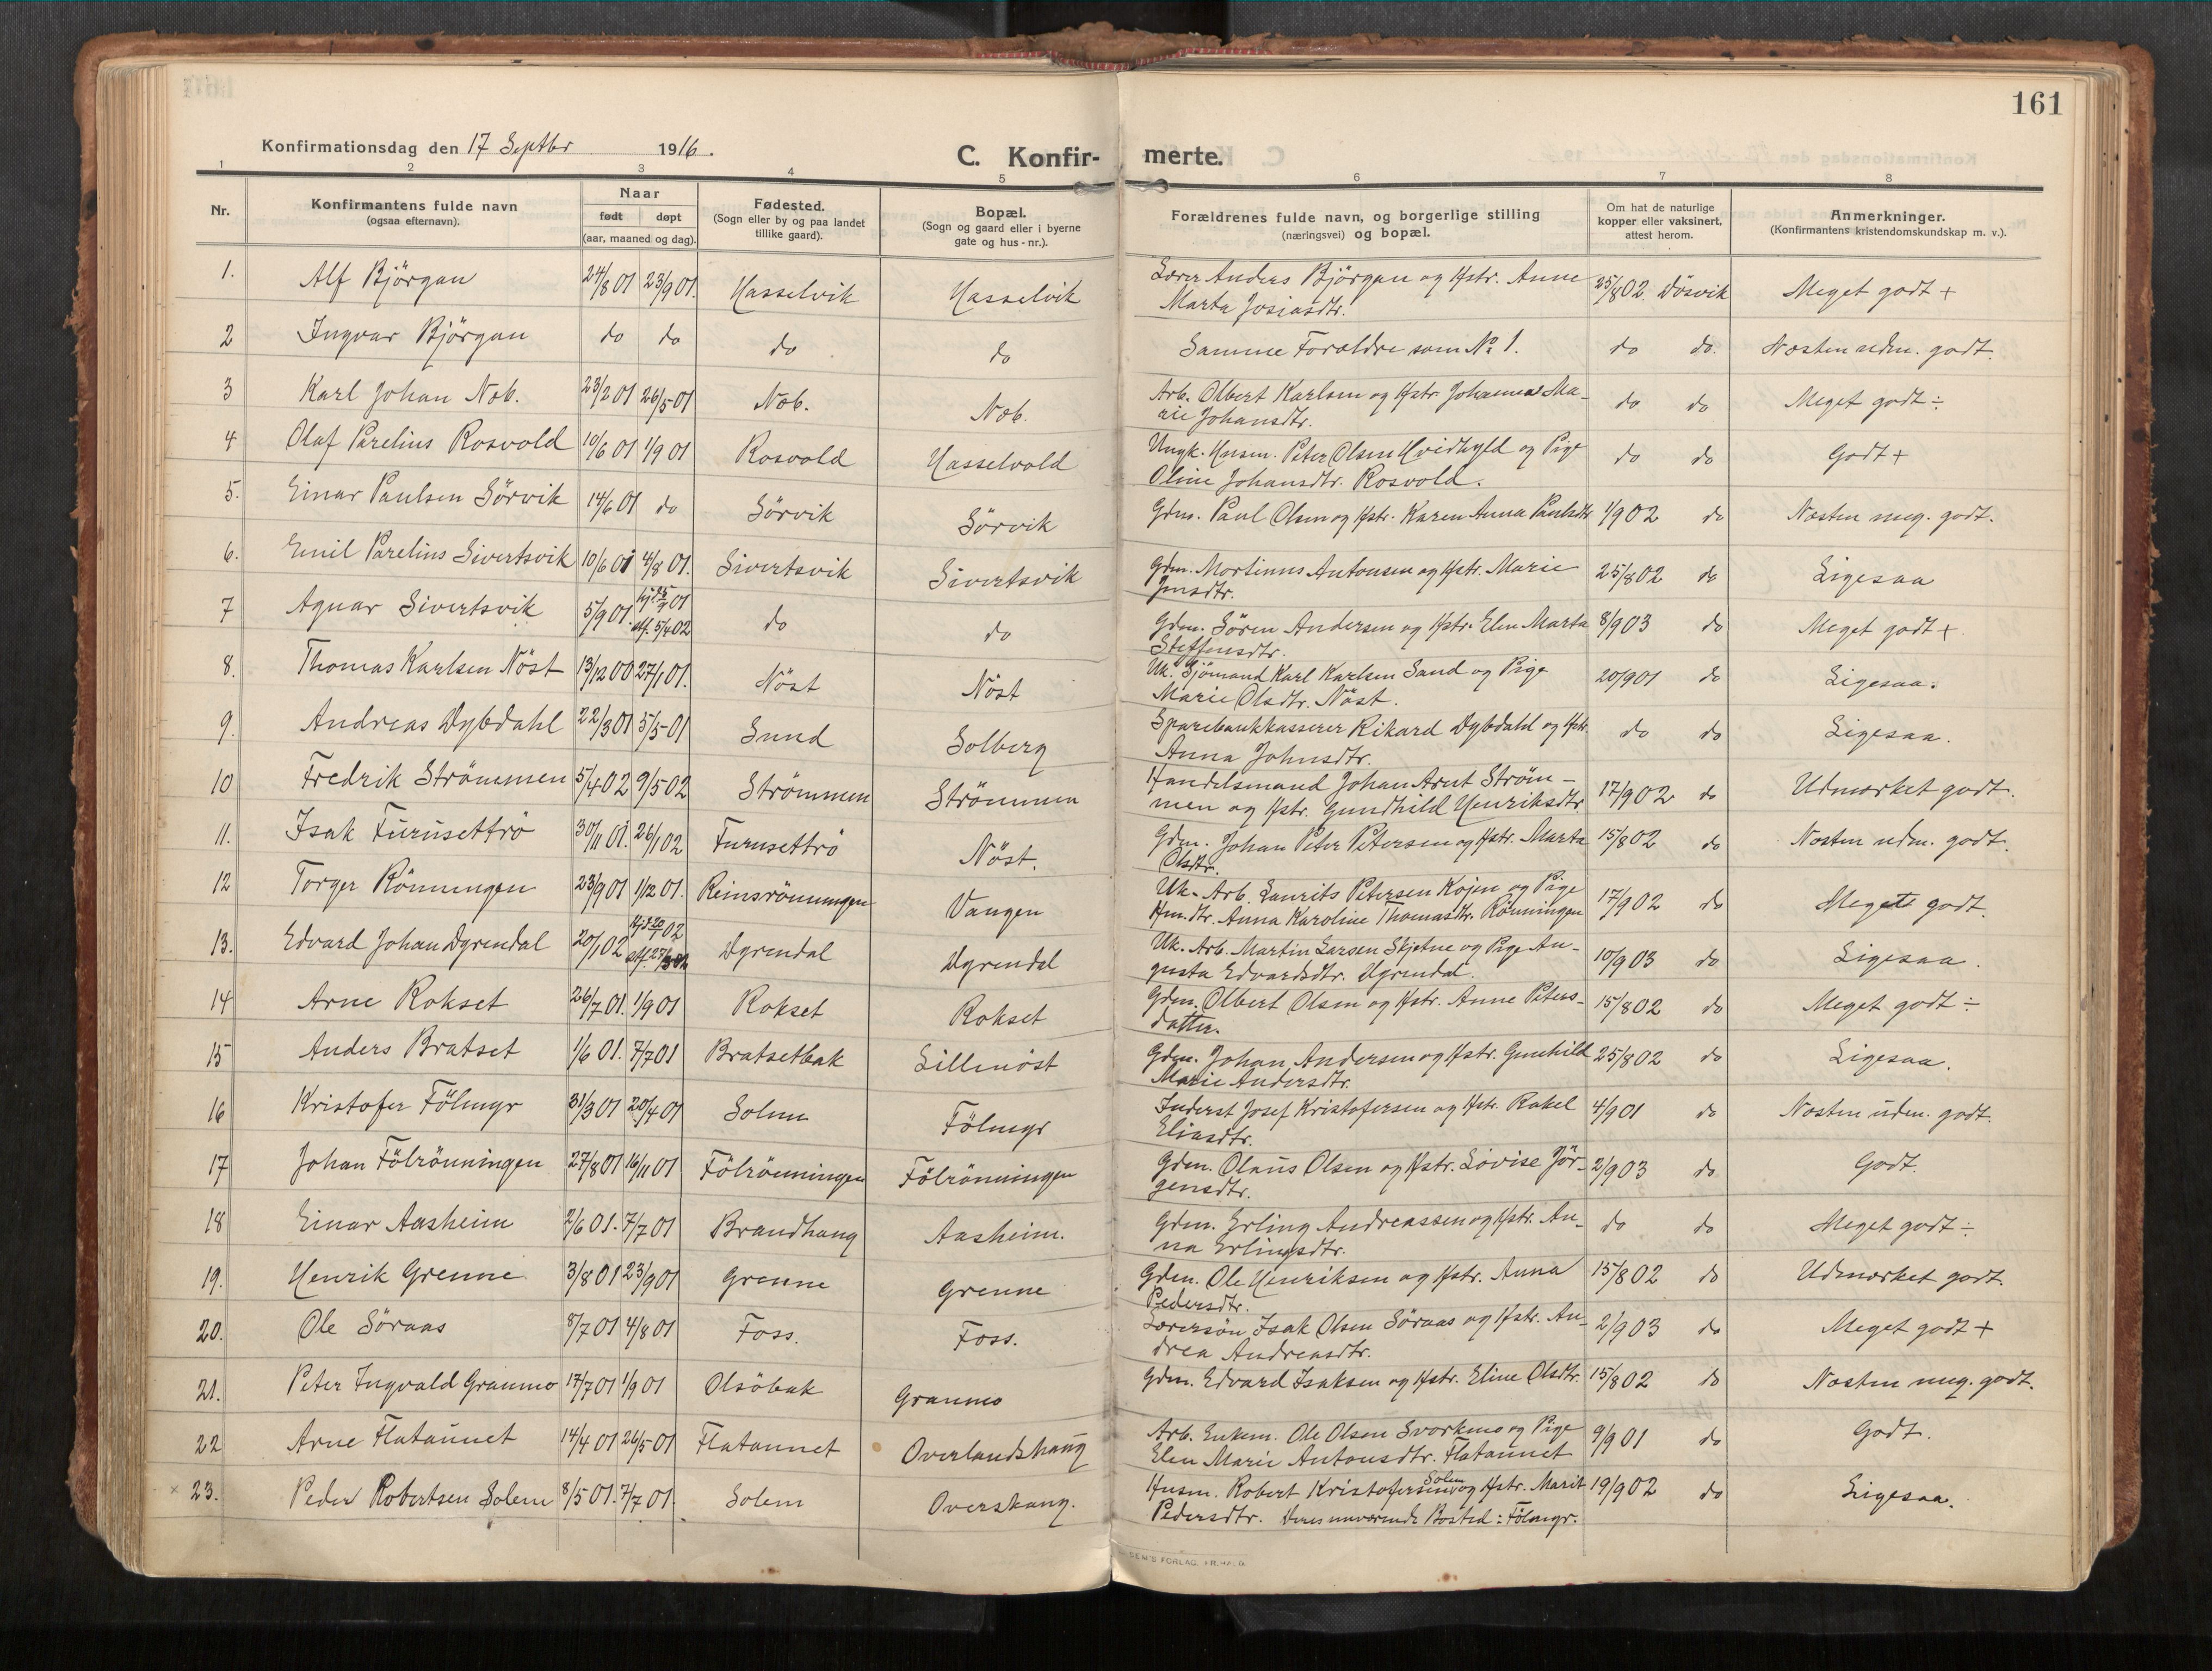 161
Konfirmationsdag den 17 Septbr 1916.
C. Konfir- merte.
1 2 3 4 5 6 7 8
Nr.
Konfirmantens fulde navn
(ogsaa efternavn).
Naar
født døpt
(aar, maaned og dag).
Fødested.
(Sogn eller by og paa landet
tillike gaard).
Bopæl.
(Sogn og gaard eller i byerne
gate og hus-nr.).
Forældrenes fulde navn, og borgerlige stilling
(næringsvei) og bopæl.
Om hat de naturlige
kopper eller vaksinert,
attest herom.
Anmerkninger.
(Konfirmantens kristendomskundskap m. v.).
1. Alf Björgan 24/8 01 23/9 01. Hasselvik Hasselvik Lærer Anders Björgan og Hstr. Anne 25/8 02. Dösvik Meget godt +
Marta Josiasdtr.
2 Ingvar Björgan do do do do Samme Forældre som No 1. do do. Næsten udm. godt.
3 Karl Johan Næb. 23/2 01 26/5 01 Næb. Næb. Arb. Olbert Karlsen og Hstr. Johanna Ma- do do Meget godt ÷
rie Johansdtr.
4 Olaf Parelius Rosvold 10/6 01 1/9 01 Rosvold Hasselvold Ungk. Husm. Peter Olsen Hvidhyld og Pige do do Godt +
Oline Johansdtr. Rosvold.
5. Einar Paulsen Sörvik 14/6 01 do Sörvik Sörvik Gdm. Paul Olsen og Hstr. Karen Anna Paulsdtr 1/9 02 do Næsten meg. godt.
6. Emil Parelius Sivertsvik 10/6 01 4/8 01. Sivertsvik Sivertsvik Gdm. Mortinus Antonsen og Hstr. Marie 25/8 02 do Ligesaa
Jensdtr.
7 Agnar Sivertsvik 5/9 01. hjd 25/9 01 do do Gdm. Sören Andersen og Hstr. Elen Marta 8/9 03 do Meget godt +
stf. 5/4 02 Steffensdtr.
8. Thomas Karlsen Nöst 13/12 00 27/1 01. Nöst Nöst Uk. Sjömand Karl Karlsen Sand og Pige 20/9 01 do Ligesaa.
Marie Olsdtr. Nöst.
9. Andreas Dybdahl 22/3 01 5/5 01 Sund Solberg Sparebankkasserer Rikard Dybdahl og Hstr. do do Ligesaa.
Anna Johnsdtr.
10 Fredrik Strömmen 5/4 02 9/5 02 Strömmen Strömmen Handelsmand Johan Arnt Ström- 17/9 02 do Udmærket godt.
men og Hstr. Gundhild Henriksdtr.
11. Isak Furusettrö 30/11 01. 26/1 02 Furusettrö Nöst. Gdm. Johan Peter Petersen og Hstr. Marta 15/8 02 do Næsten udm. godt.
Olsdtr.
12 Torger Rönningen 23/9 01 1/12 01. Reinsrönningen Vangen Uk. Arb. Laurits Petersen Kojen og Pige 17/9 02 do Meget godt.
Hm.dtr. Anna Karoline Thomasdtr. Rönningen
13. Edvard Johan Dyrendal 20/1 02 hjd 02 Dyrendal Dyrendal Uk. Arb. Martin Larsen Skjetne og Pige Au- 10/9 03 do Ligesaa.
stf. gusta Edvardsdtr. Dyrendal.
14 Arne Rokset 26/7 01. 1/9 01 Rokset Rokset Gdm. Olbert Olsen og Hstr. Anne Peters- 15/8 02 do Meget godt ÷
datter.
15 Anders Bratset 1/6 01. 7/7 01 Bratsetbak Lillenöst Gdm. Johan Andersen og Hstr. Gunhild 25/8 02 do Ligesaa.
Marie Andersdtr.
16 Kristofer Fölmyr 31/3 01 20/4 01 Solem Fölmyr Inderst Josef Kristofersen og Hstr. Rakel 4/9 01 do Næsten udm. godt.
Eliasdtr.
17 Johan Fölrönningen 27/8 01 16/11 01 Fölrönningen Fölrönningen Gdm. Olaus Olsen og Hstr. Lovise Jör- 2/9 03 do Godt.
gensdtr.
18 Einar Aasheim 2/6 01. 7/7 01 Brandhaug Aasheim. Gdm. Erling Andreassen og Hstr. An- do do Meget godt ÷
na Erlingsdtr.
19. Henrik Grenne 3/8 01 23/9 01 Grenne Grenne Gdm. Ole Henriksen og Hstr. Anna 15/8 02 do Udmærket godt.
Pedersdtr.
20. Ole Söraas 8/7 01 4/8 01 Foss. Foss. Lærersön Isak Olsen Söraas og Hstr. An- 2/9 03 do Meget godt +
drea Andreasdtr.
21. Peter Ingvald Granmo 17/7 01 1/9 01 Olsöbak Granmo Gdm. Edvard Isaksen og Hstr. Eline Olsdtr. 15/8 02 do Næsten meg. godt.
22 Arne Flataunet 14/4 01 26/5 01 Flataunet Overlandshaug Arb. Enkem. Ole Olsen Svorkmo og Pige 9/9 01 do Godt.
Elen Marie Antonsdtr. Flataunet
× 23. Peder Robertsen Solem 8/5 01. 7/7 01. Solem Overskaug. Husm. Robert Kristofersen Solem og Hstr. Marit 19/9 02 do Ligesaa.
Pedersdtr. Deres nuværende Bosted: Fölmyr.
FORLAG,